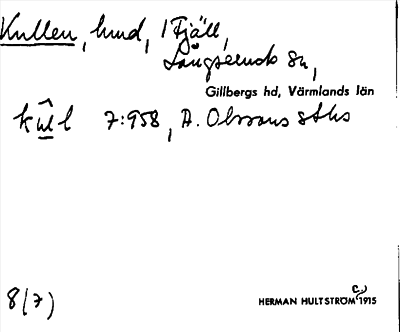 Kullen, hund, i Fjäll,
Långseruds sn,
Gillbergs hd, Värmlands län
kul̂l 7:958, A. Olssons sths
8(7)
HERMAN HULTSTRÖM c:a 1915